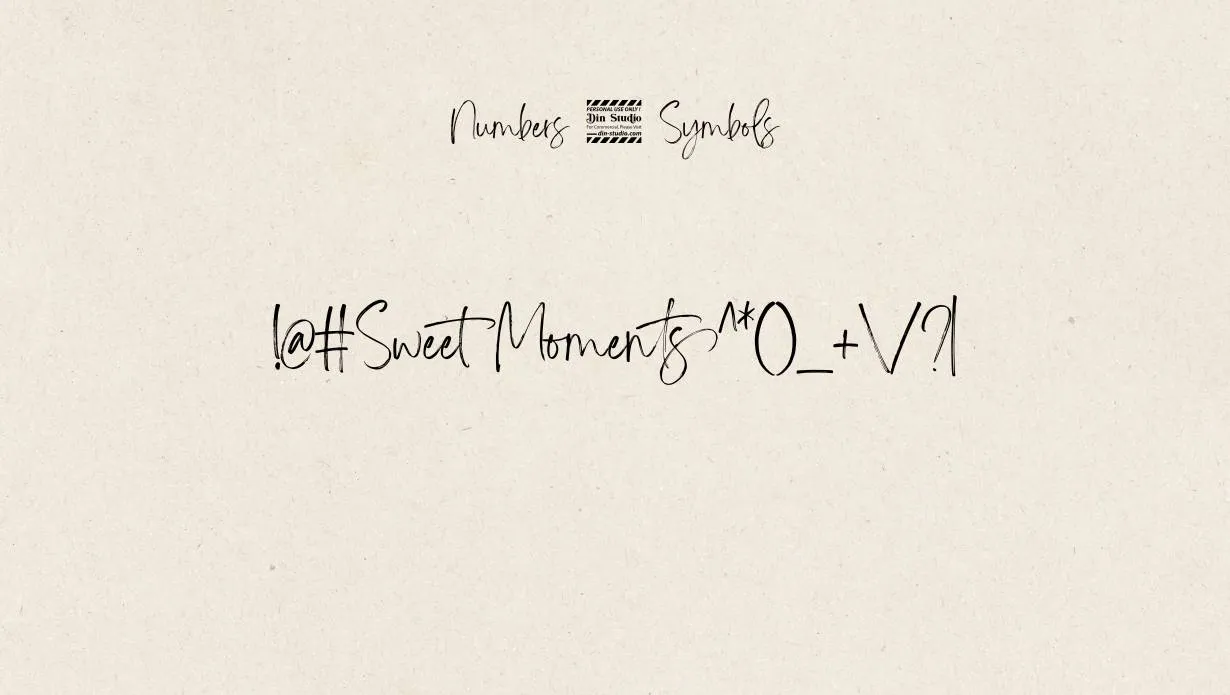 Numbers PERSONAL USE ONLY! Din Studio For Commercial, Please Visit din-studio.com Symbols
!@#Sweet Moments^*()_+\/?|